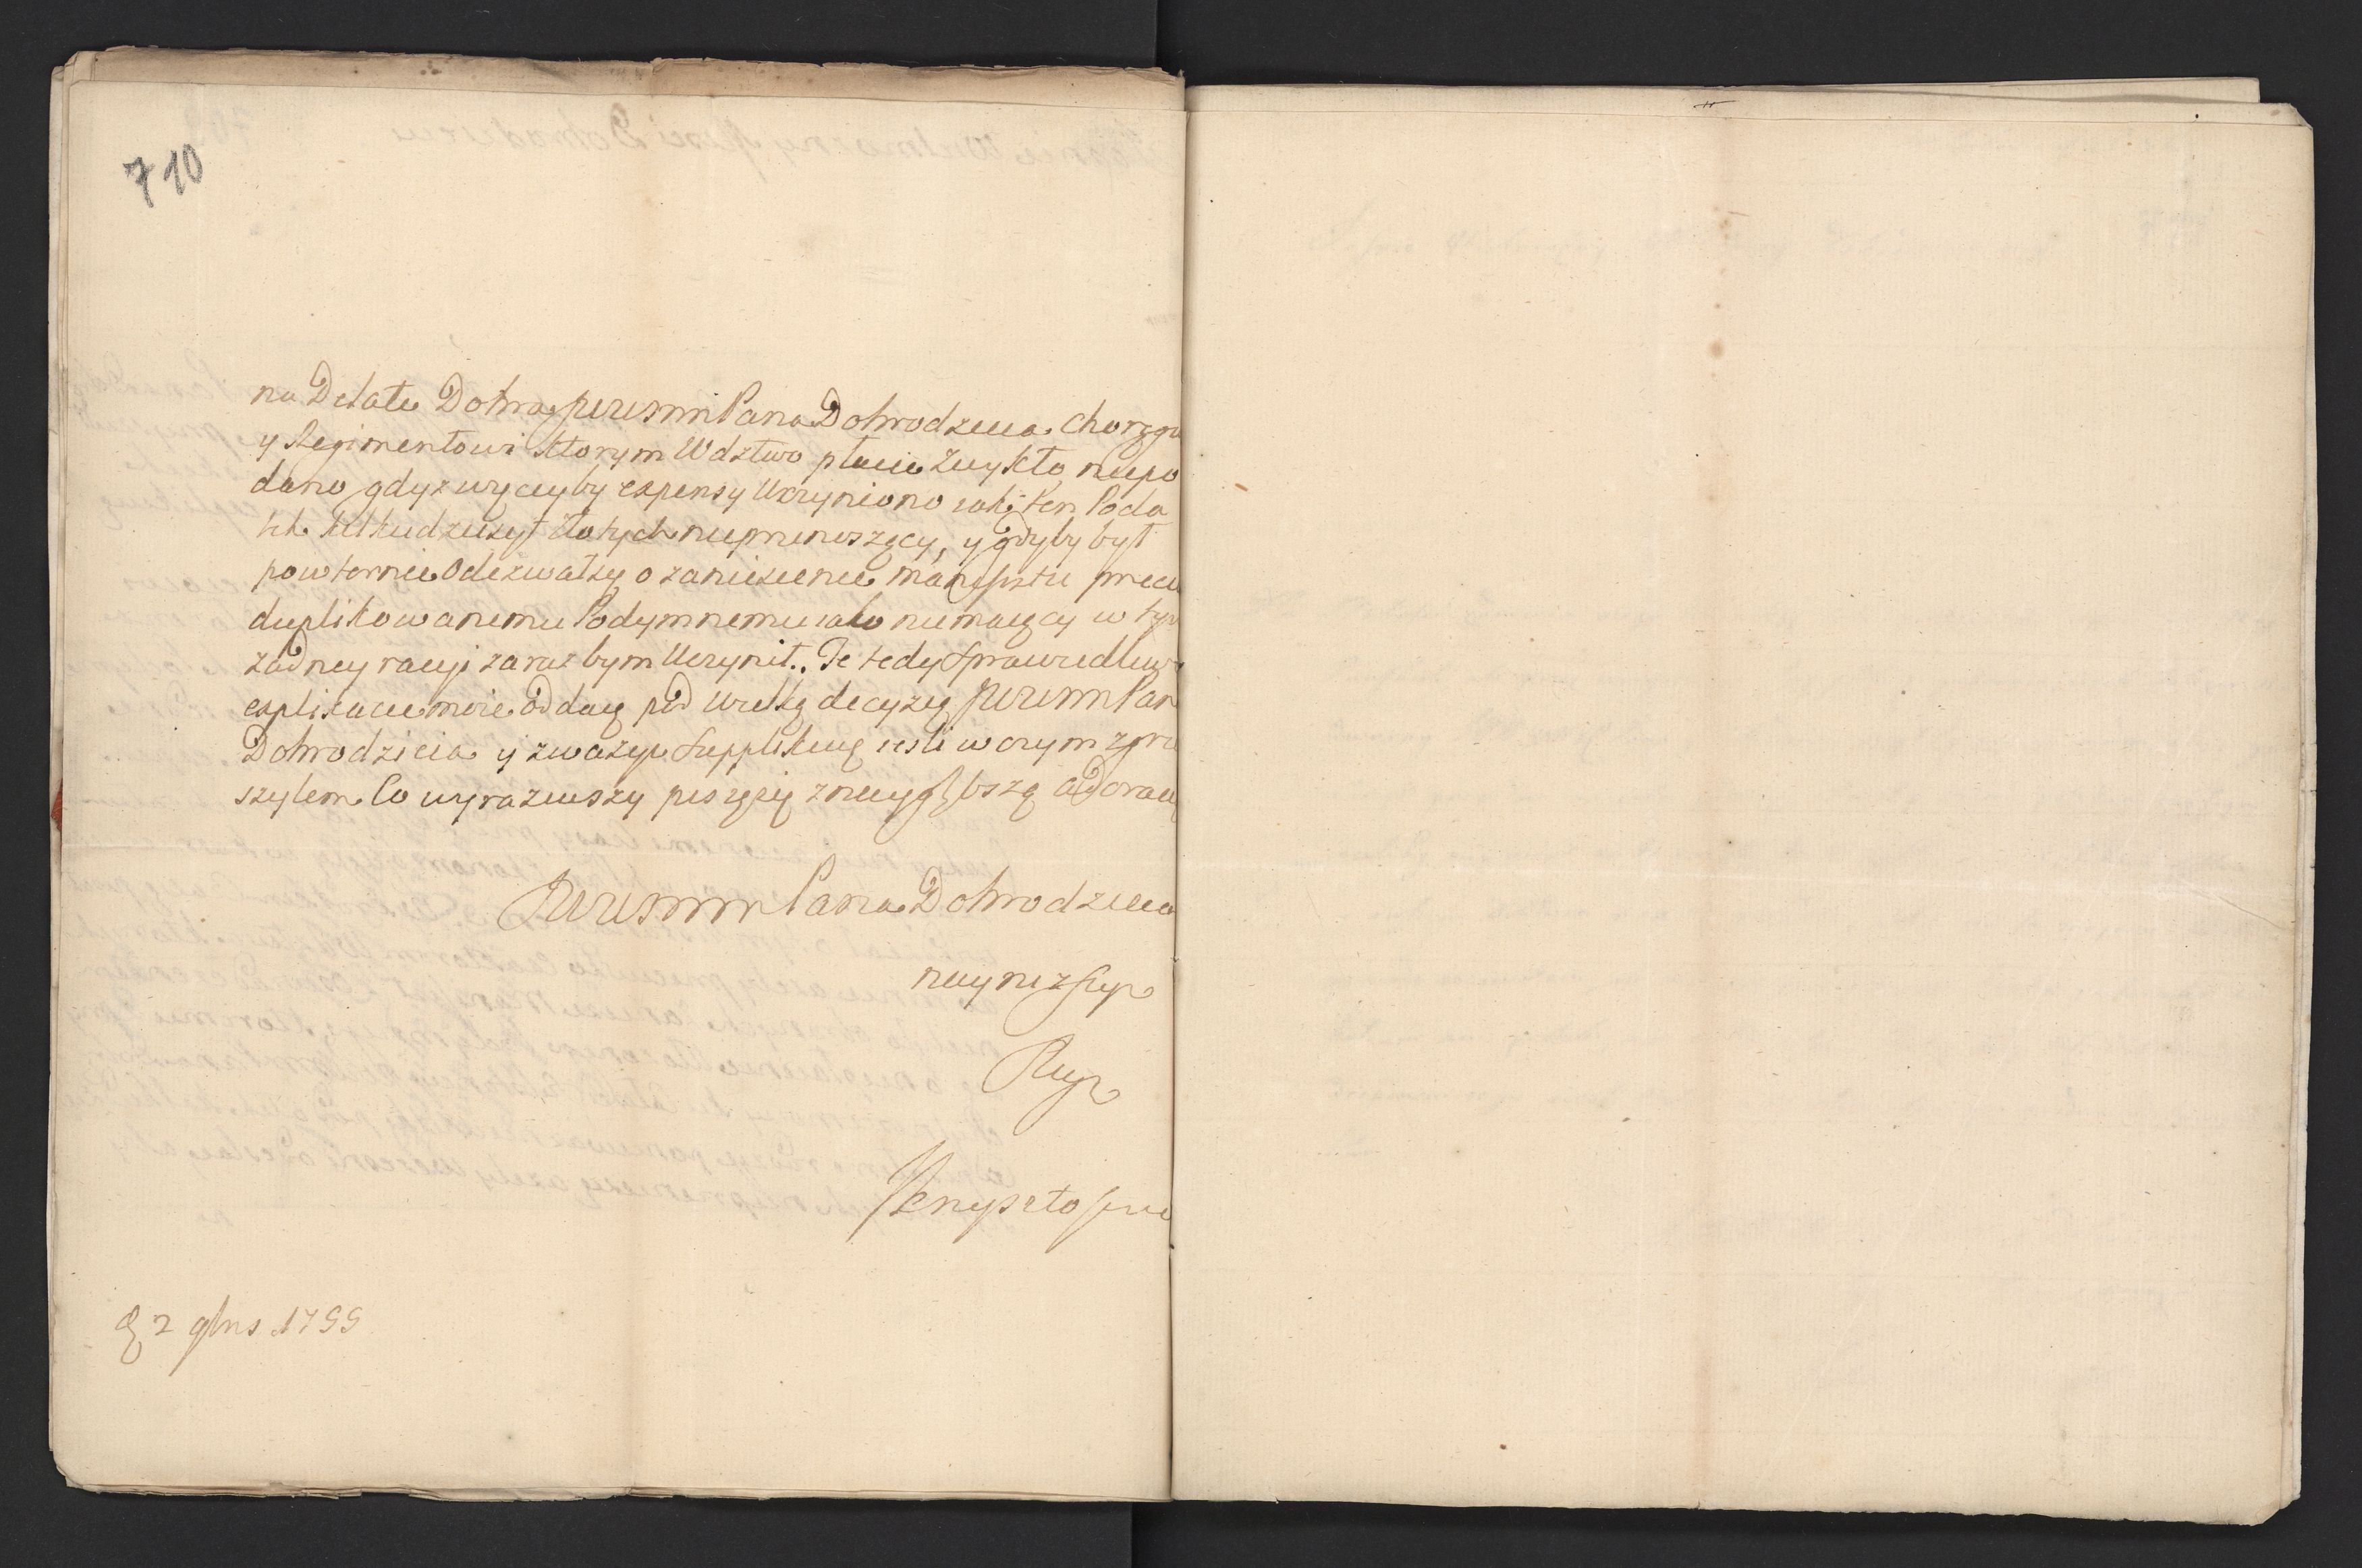 710
na Delate Dobra JWWM Pana Dobrodzieia chorągw
y Regimentowi ktorym Wdztwo płacic zwykło, niepo
dano, gdyz więceyby expensy Uczyniono iak ten Poda
tek kilkudziesiąt złotych nieprzenoszący, y gdyby był
powtornie Odezwał się o zaniesienie manifestu przeciw
duplikowanemu Podymnemu iako niemaiący w tym
zadney racyi zaraz bym Uczynił. Te tedy Sprawiedliwe
explikacie moie oddaię pod wielką decyzyą JWWM Pan
Dobrodzieia y zwazyc Supplikuię iesli w czym zgrze
szyłem. Co wyraziwszy piszę się z naygłębszą adoracyą
JWWMM Pana Dobrodzieia
nayniższym
Sługą
Krzysztof
2 9bris 1755